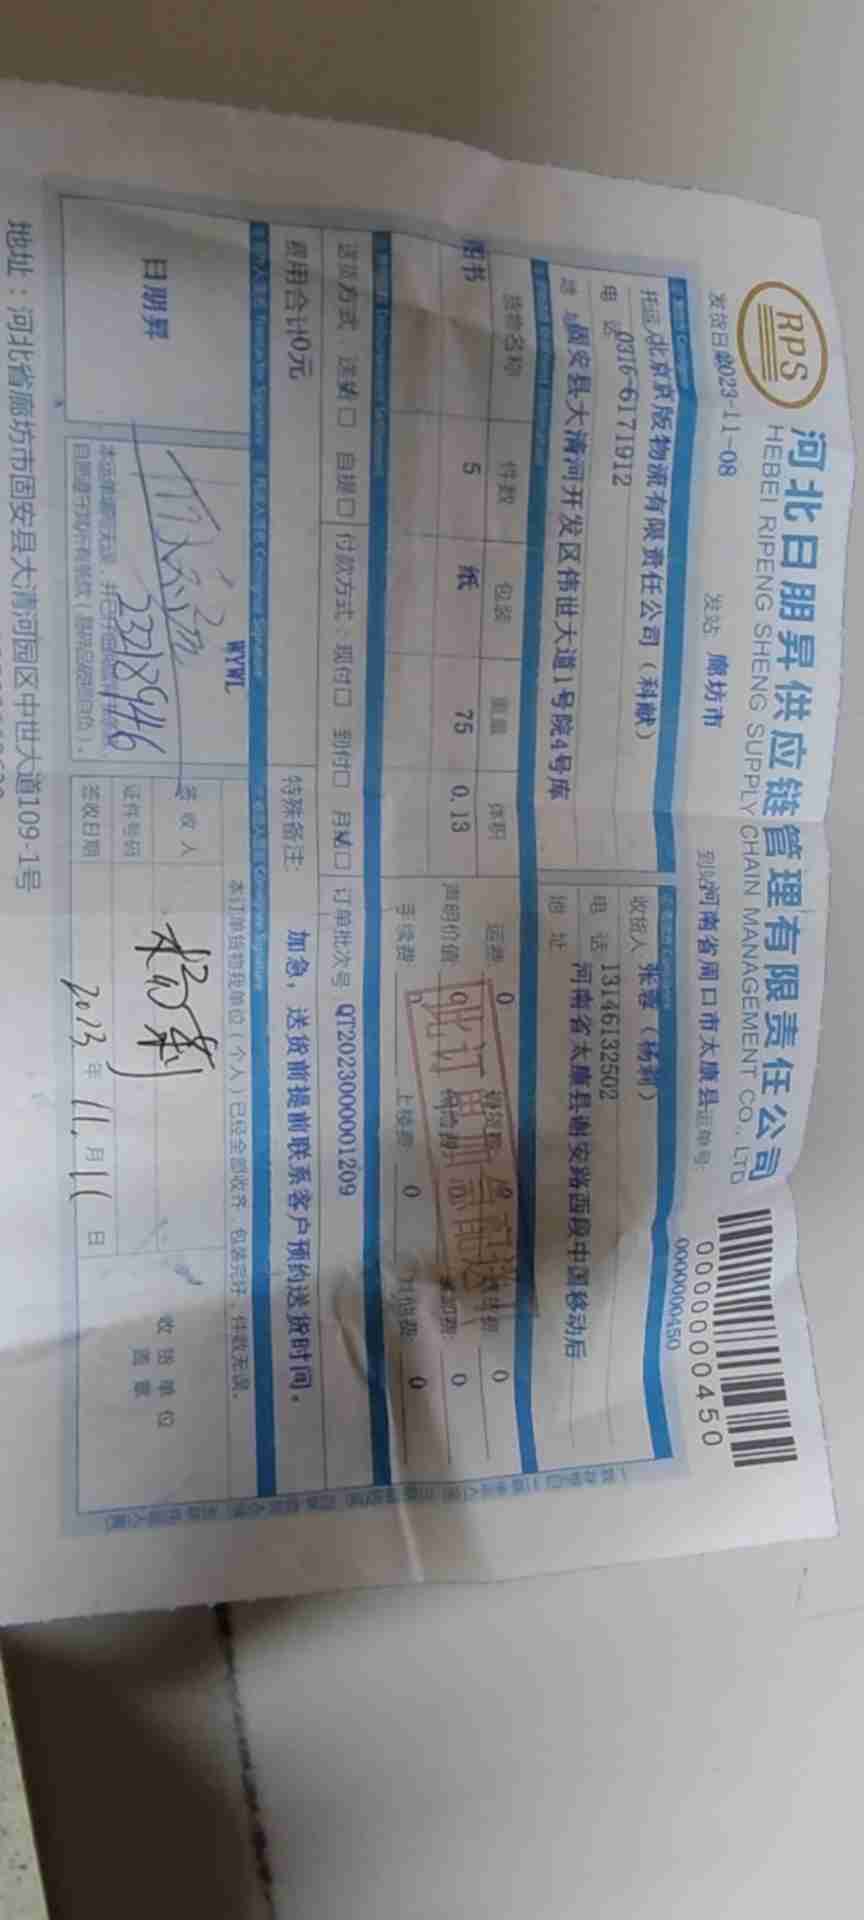 RPS
河北日朋昇供应链管理有限责任公司
HEBEI RIPENG SHENG SUPPLY CHAIN MANAGEMENT CO., LTD
0000000450
发货日期2023-11-08 发站 廊坊市 到站河南省周口市太康县 运单号: 0000000450
托运人北京京版物流有限责任公司(科献)
电 话 0316-6171912
地 址 固安县大清河开发区伟世大道1号院4号库
收货人 张蓉(杨莉)
电 话 13146132502
地 址 河南省太康县谢安路西段中国移动后
货物名称 件数 包装 重量 体积
图书 5 纸 75 0.13
运费: 0 0 0
声明价值: 0 0
手续费: 0 上楼费: 0 其他费: 0
此订单加急配送
送货方式: 送货 自提 付款方式: 现付 到付 月结 订单批次号 QT2023000001209
费用合计0元
特殊备注: 加急,送货前提前联系客户预约送货时间。
日朋昇
WYWL
本订单货物我单位(个人)已经全部收齐,包装完好,件数无误。
签 收 人 杨莉
证件号码
签收日期 2023 年 11 月 11 日
收 货 单 位
盖 章
地址:河北省廊坊市固安县大清河园区中世大道109-1号